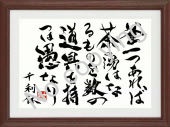 釜一つあれば
茶の湯はな
るものを数の
道具を持
つは愚
千利休